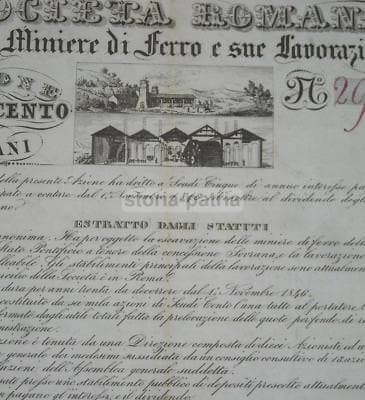 SOCIETÀ ROMANA
Miniere di Ferro e sue Lavorazi
ONE
CENTO
ANI
N.º 29
della presente Azione ha dritto a Scudi Cinque di annuo interesse pa
pate a contare dal 1.º al dividendo degli
ESTRATTO DAGLI STATUTI
anonima. Ha per oggetto la escavazione delle miniere di ferro dell
Stato Pontificio a tenore della concessione Sovrana, e la lavorazione
leabile. Gli stabilimenti principali della lavorazione sono attualmen
della Società è in Roma.
dura per anni trenta da decorrere dal 1.º Novembre 1846.
costituito da se mila azioni di Scudi Cento l'una tutte al portatore
formate dagli utili totali fatta la prelevazione delle quote
ministrazione.
zione è tenuta da una Direzione composta di dieci Azionisti, ed un
generale dei medesimi sussidiata da un consiglio consultivo di azion
azioni dell'Assemblea generale suddetta.
uati presso uno stabilimento pubblico di depositi prescelto attualmen
si pagano gl'interessi, e il dividendo
storia-patria